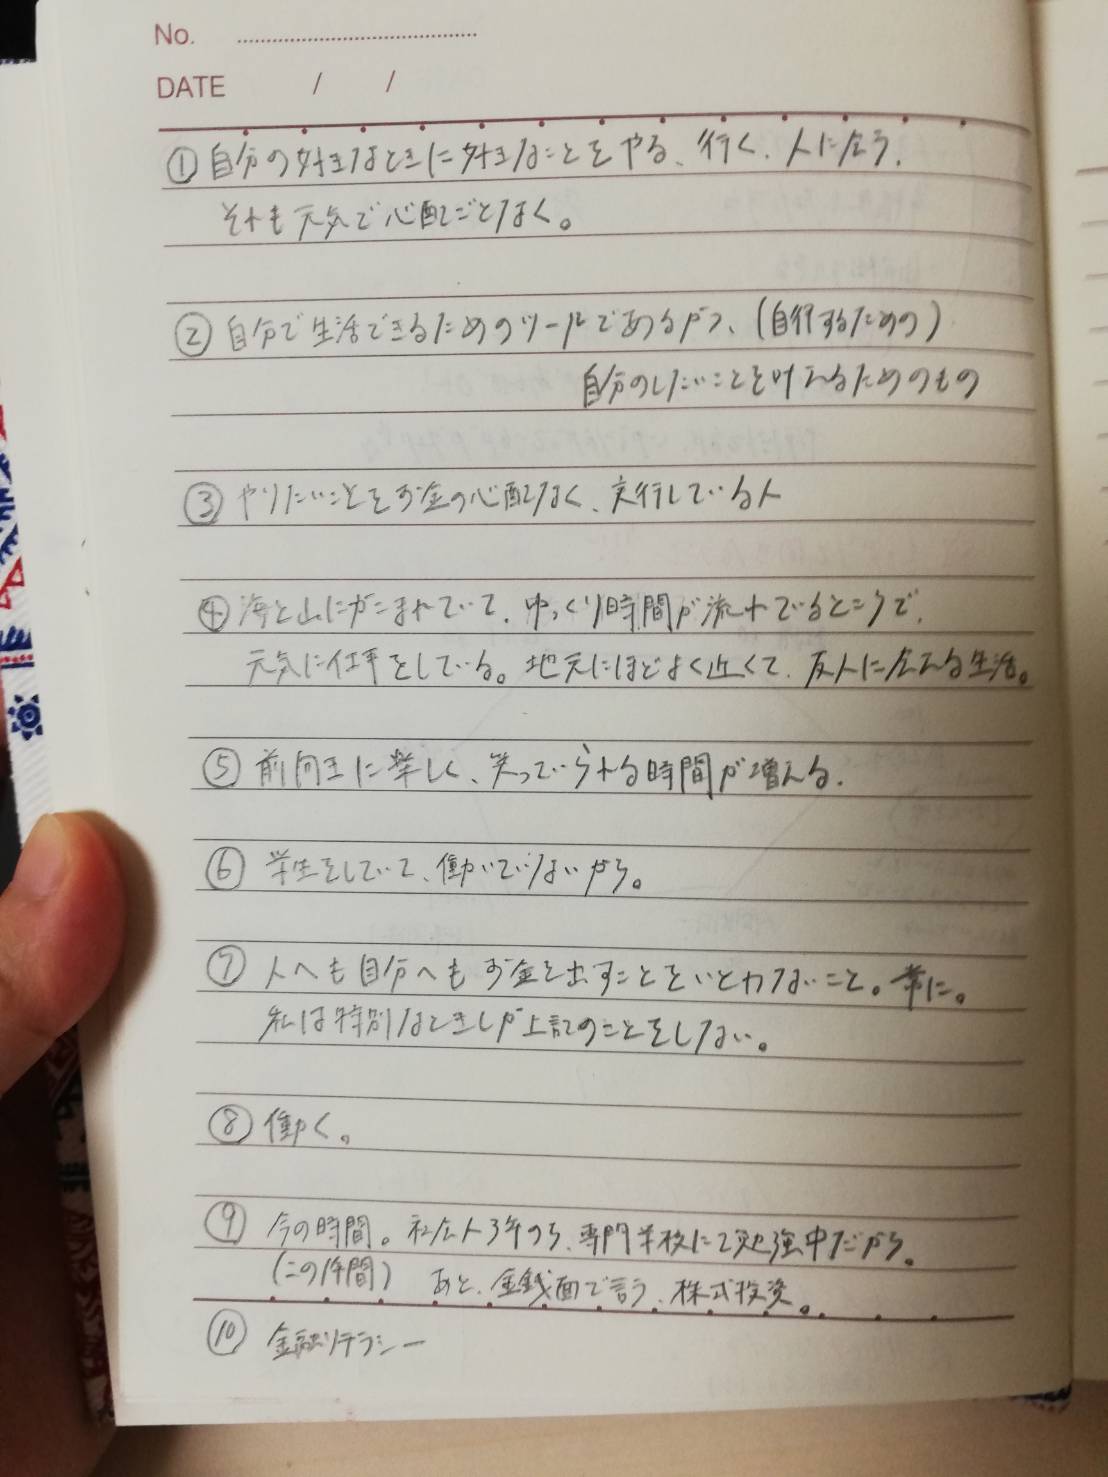 No.
DATE / /
①自分の好きなときに好きなことをやる、行く、人に会う、
それも元気で心配ごとなく。
②自分で生活できるためのツールであるから、(自行するための)
自分のしたいことを叶えるためのもの
③やりたいことをお金の心配なく、実行している人
④海と山にかこまれていて、ゆっくり時間が流れているところで、
元気に仕事をしている。地元にほどよく近くて、友人に会える生活。
⑤前向きに楽しく、笑っていられる時間が増える。
⑥学生をしていて、働いていないから。
⑦人へも自分へもお金を出すことをいとわないこと。常に。
私は特別なときしか上記のことをしない。
⑧働く。
⑨今の時間。社会人3年のち、専門学校にて勉強中だから。
(この1年間) あと、金銭面で言う、株式投資。
⑩金融リテラシー